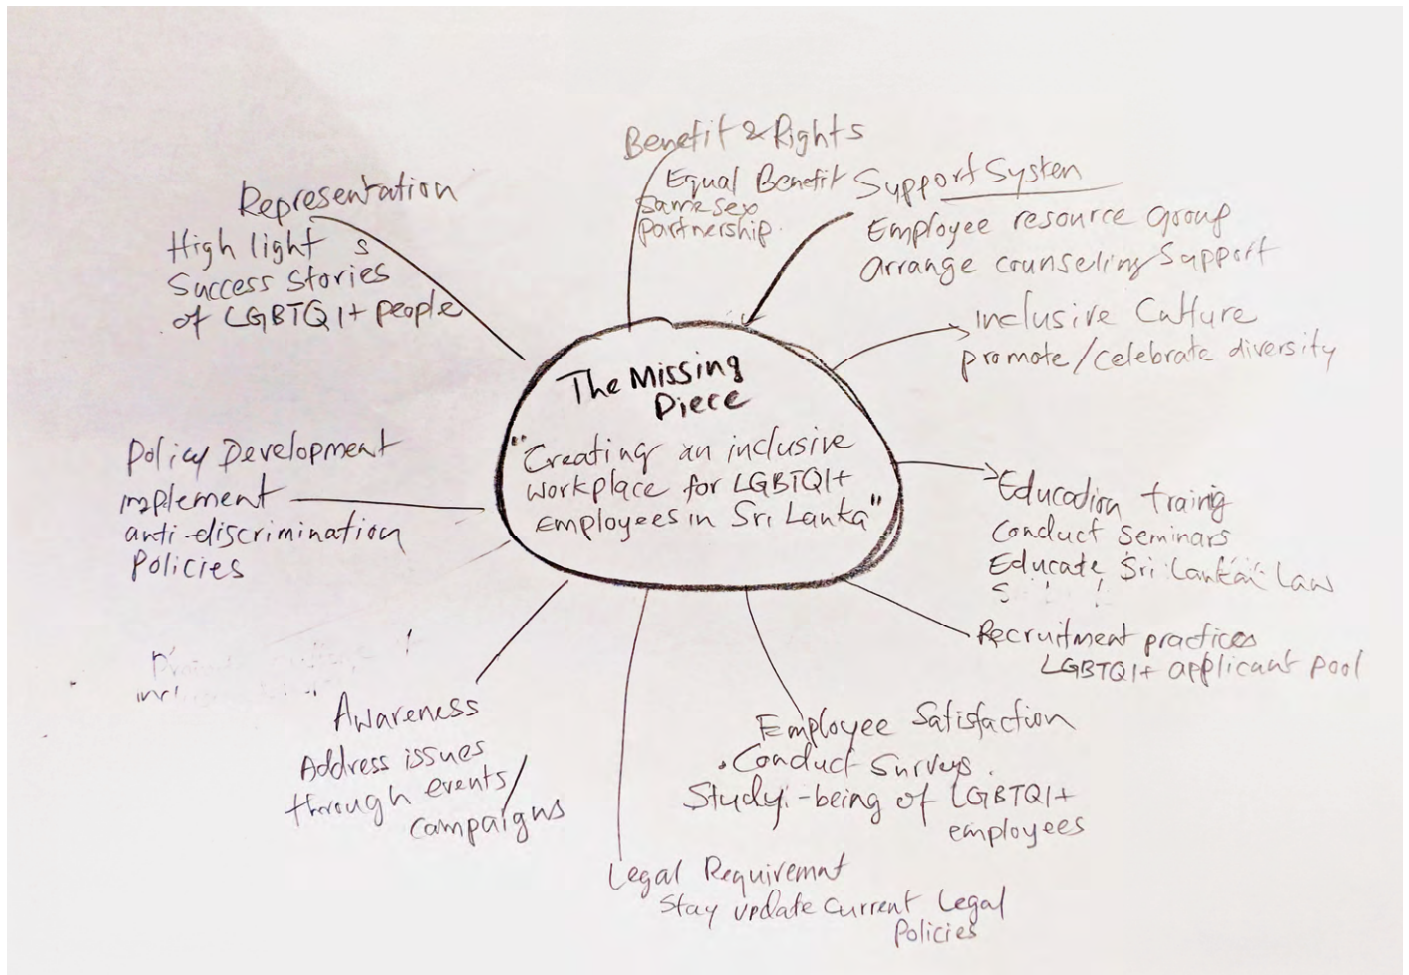 The Missing
Piece
"Creating an inclusive
workplace for LGBTQI+
Employees in Sri Lanka"
Benefit & Rights
Equal Benefit
Same sex
partnership.
Support System
Employee resource group
Arrange counseling Support
Inclusive Culture
promote/celebrate diversity
Education traing
Conduct seminars
Educate Sri Lankan Law
Recruitment practices
LGBTQI+ applicant pool
Employee Satisfaction
. Conduct surveys.
Study -being of LGBTQI+
employees
Legal Requiremnt
Stay update current Legal
Policies
Awareness
Address issues
through events/
campaigns
Policy Development
implement
anti-discrimination
Policies
Representation
High light s
Success Stories
of LGBTQI+ people